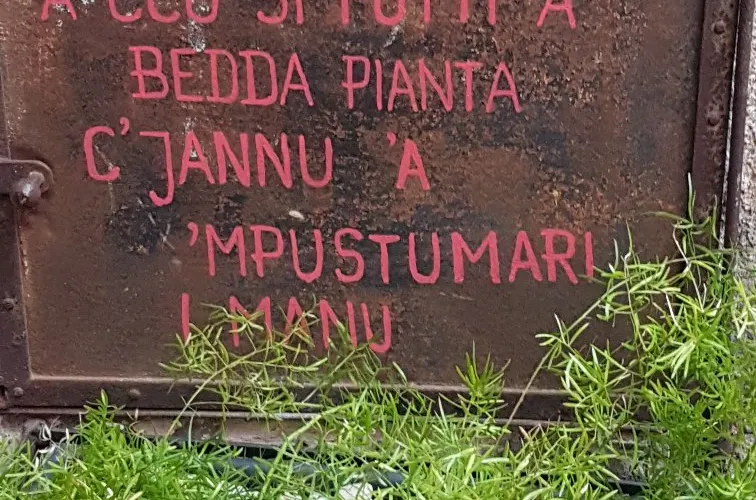 A CCU SI FUTTI A
BEDDA PIANTA
C'JANNU 'A
'MPUSTUMARI
I MANU